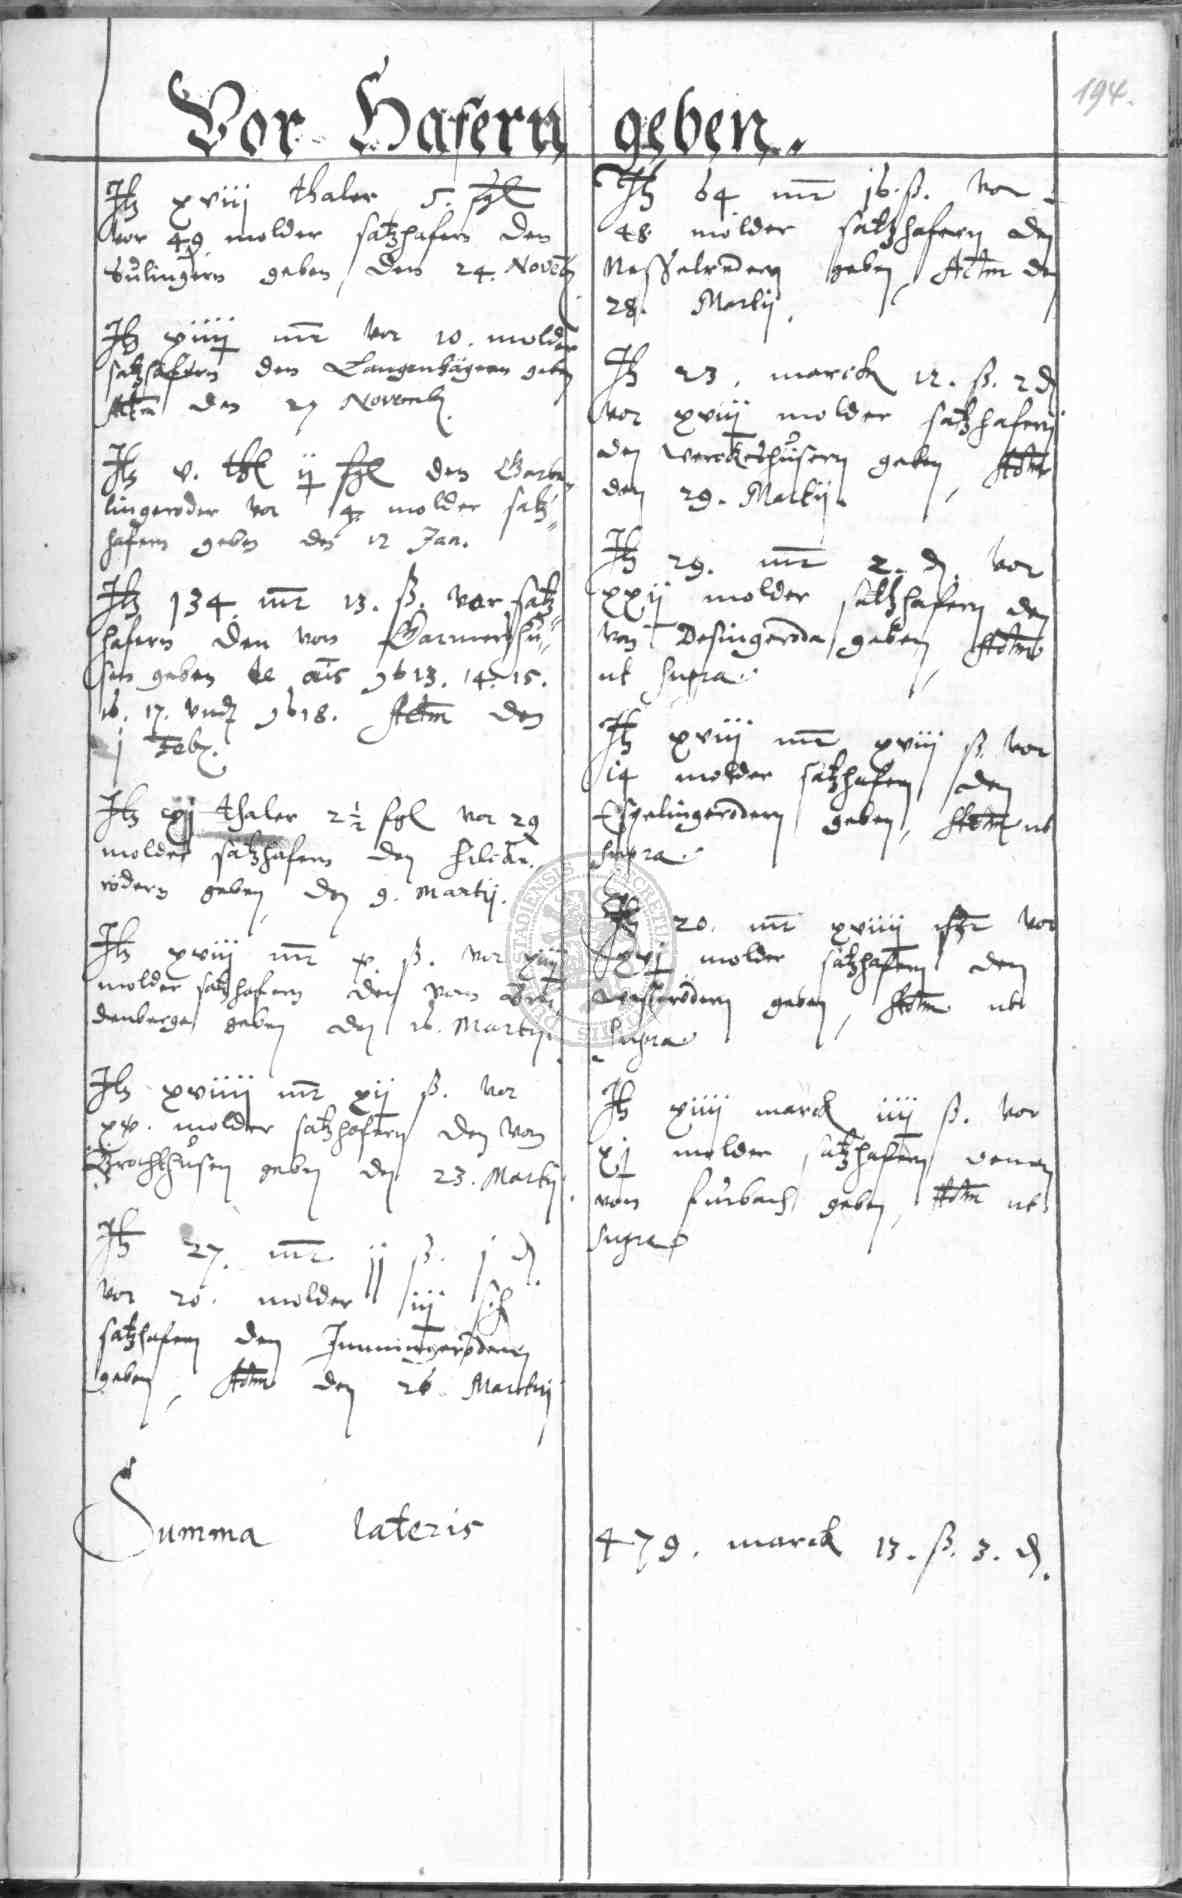 194.
Vor Hafern geben.
Itz xviij thaler 5. ßgl
vor 49 molder satzhafern den
Sulingern geben den 24. Novemb
Itz xiiij mr vor 10. molder
satzhafern den Langenhägern geben
Actm den 27 Novemb.
Itz v. thl ij ßgl den Gerb
lingeroder vor 4 molder satz
hafern geben den 12 Jan.
Itz 134 mr 13. ß. vor satz
hafern den von
sen geben de ais 1613. 14. 15.
16. 17. vnd 1618. Actm den
j Feb.
Itz xij thaler 2½ ßgl vor 29
molder satzhafern den
rodern geben, den 9. Martij.
Itz xviij mr x. ß. vor xiiij
molder satzhafern den von Brei
denberge geben den 16. Martij.
Itz xviiij mr xij ß. vor
xv. molder satzhafern den von
Brochthusen geben den 23. Martij.
Itz 27. mr ij ß. j d.
vor 20. molder iiij
satzhafern den Immingerodern
geben, Actm den 26 Martij
Summa lateris
Itz 64 mr 16. ß. vor
48 molder satzhafern den
Nesselrodern geben, Actm den
28. Martij.
Itz 23. marck 12. ß. 2 d
vor xviij molder satzhafern
den Werckeshusern geben, Actm
den 29. Martij.
Itz 29. mr 2. d. vor
xxij molder satzhafern den
von Desingeroda geben, Actm
ut supra.
Itz xviij mr xviij ß. vor
14 molder satzhafern den
Espelingerodern geben, Actm ut
supra.
Itz 20. mr xviiij vor
xvj molder satzhafern den
Westerodern geben, Actm ut
supra
Itz xiiij marck iiij ß. vor
xj molder satzhafern denen
von Furbach geben, Actm ut
supra
479. marck 13. ß. 3. d.